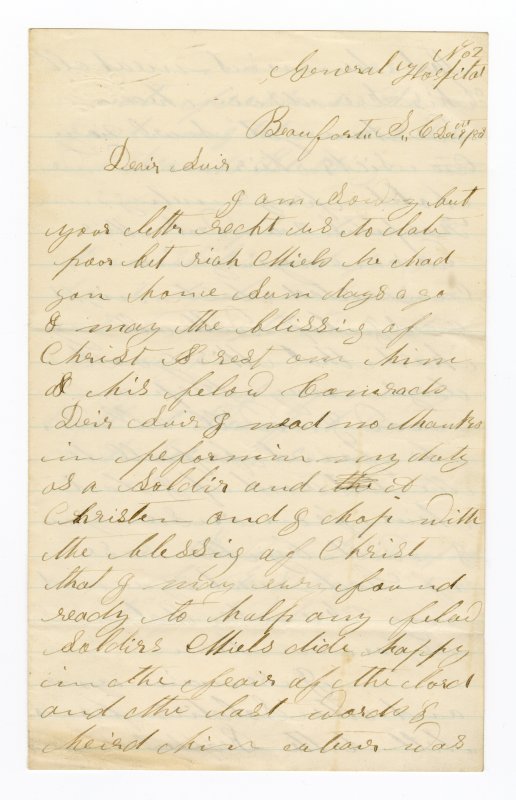 No 2
General Hospital
Beaufort S. C Dec
Deair Suir
I am Sorry but
your lettr recht us to late
poor het riah Miels he had
gon home Sum days a go
& may the blissig of
Christ rest om him
& his felow Comrads
Deir Suir I nead no thanks
in peformin my duty
as a Soldir and the a
Christen and I hop with
the blessig of Christ
that I may ever found
ready to halp any felow
Soldirs Miels dide happy
in the feair of the lord
and the last words I
heird him was